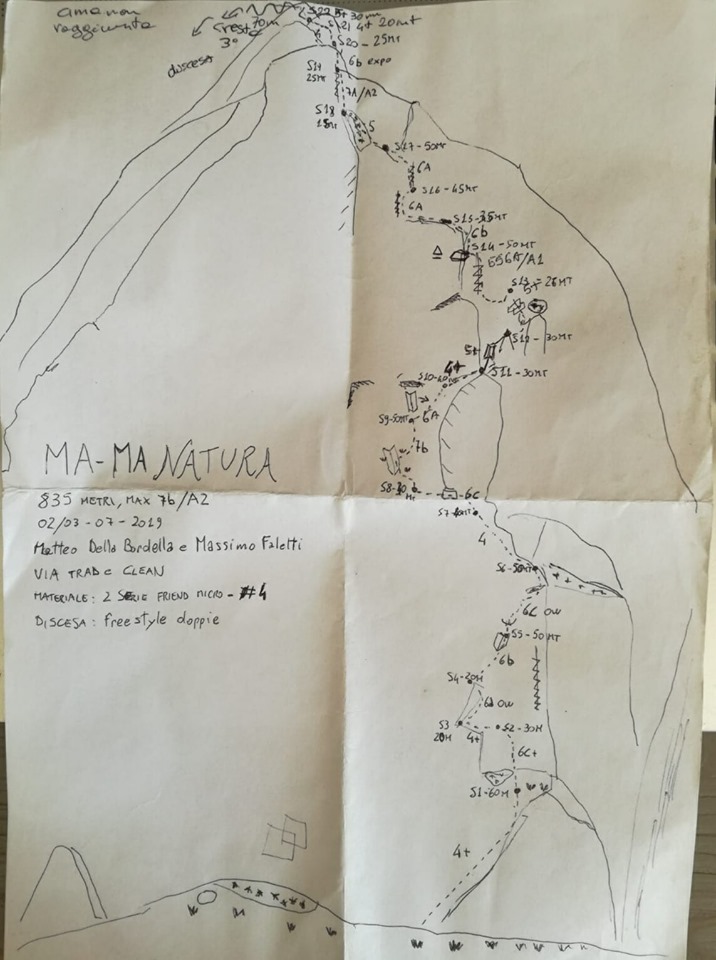 cima non
raggiunta
cresta 70m
3°
discesa
S22 5+ 30m
S21 4+ 20mt
S20 - 25MT
6b expo
S19
25MT
7A/A2
S18
15MT
5
S17-50MT
6A
S16-45MT
6A
S15-35MT
6b
S14-50MT
6A/A1
S13-25MT
5+
S12-30MT
5+
S11-30MT
4+
S10-40
6A
S9-50MT
7b
S8-30
MT
6c
S7-
4
S6-50MT
6C OW
S5-50MT
6b
S4-20M
OW
S3
20M
4+
S2-30M
6C+
S1-60M
4+
MA-MA NATURA
835 METRI, MAX 7b/A2
02/03-07-2019
Matteo Della Bordella e Massimo Faletti
VIA TRAD E CLEAN
MATERIALE: 2 SERIE FRIEND MICRO - #4
DISCESA: freestyle doppie